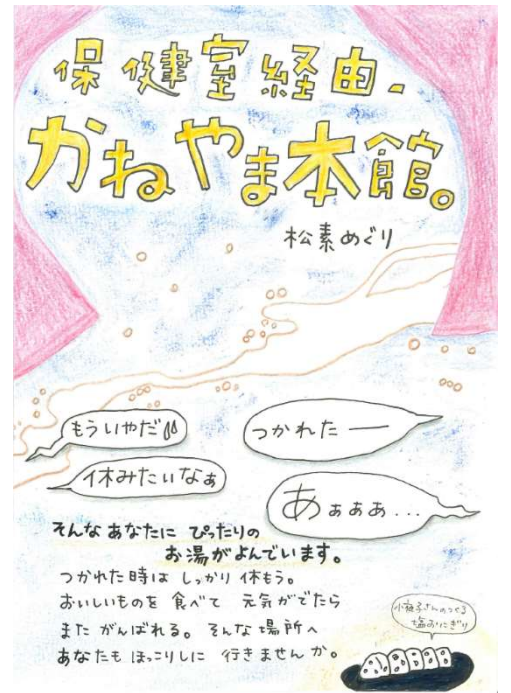 保健室経由、
かねやま本館。
松素めぐり
もういやだ
つかれたー
休みたいなぁ
あぁぁぁ...
そんなあなたに ぴったりの
お湯がよんでいます。
つかれた時は しっかり休もう。
おいしいものを 食べて 元気がでたら
また がんばれる。そんな場所へ
あなたも ほっこりしに 行きませんか。
小夜子さんのつくる
塩おにぎり